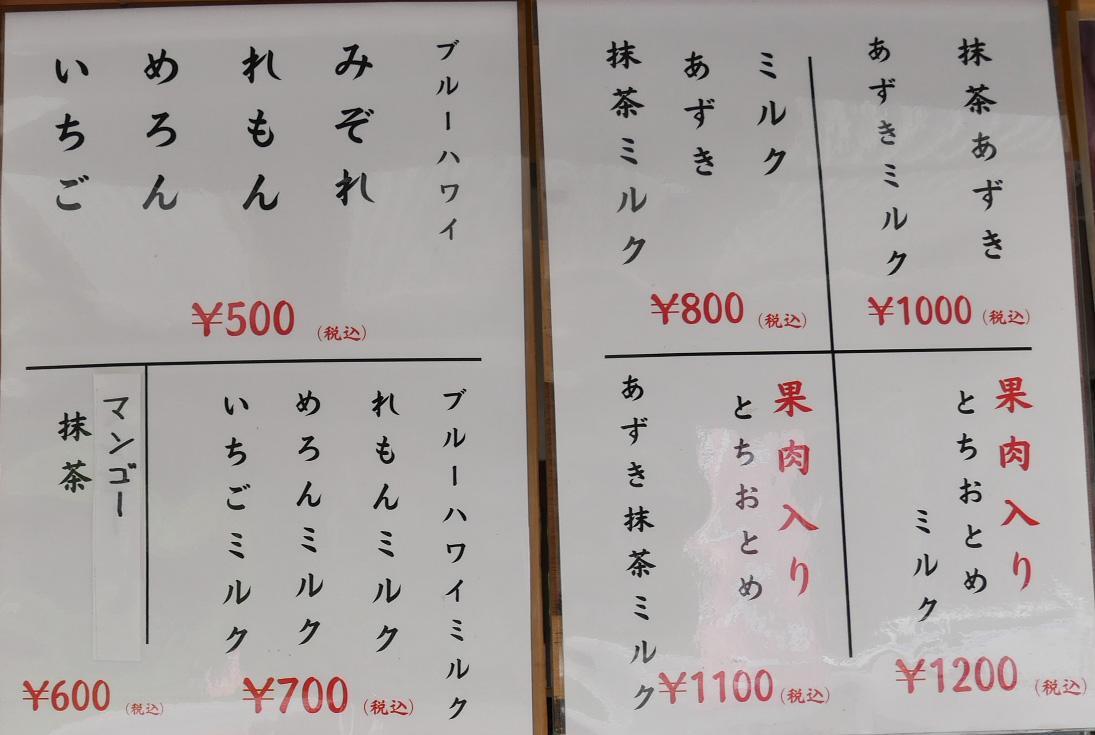 ブルーハワイ
みぞれ
れもん
めろん
いちご
¥500 (税込)
ブルーハワイミルク
れもんミルク
めろんミルク
いちごミルク
¥700 (税込)
マンゴー
抹茶
¥600 (税込)
抹茶あずき
あずきミルク
¥1000 (税込)
ミルク
あずき
抹茶ミルク
¥800 (税込)
果肉入り
とちおとめ
ミルク
¥1200 (税込)
果肉入り
とちおとめ
あずき抹茶ミルク
¥1100 (税込)